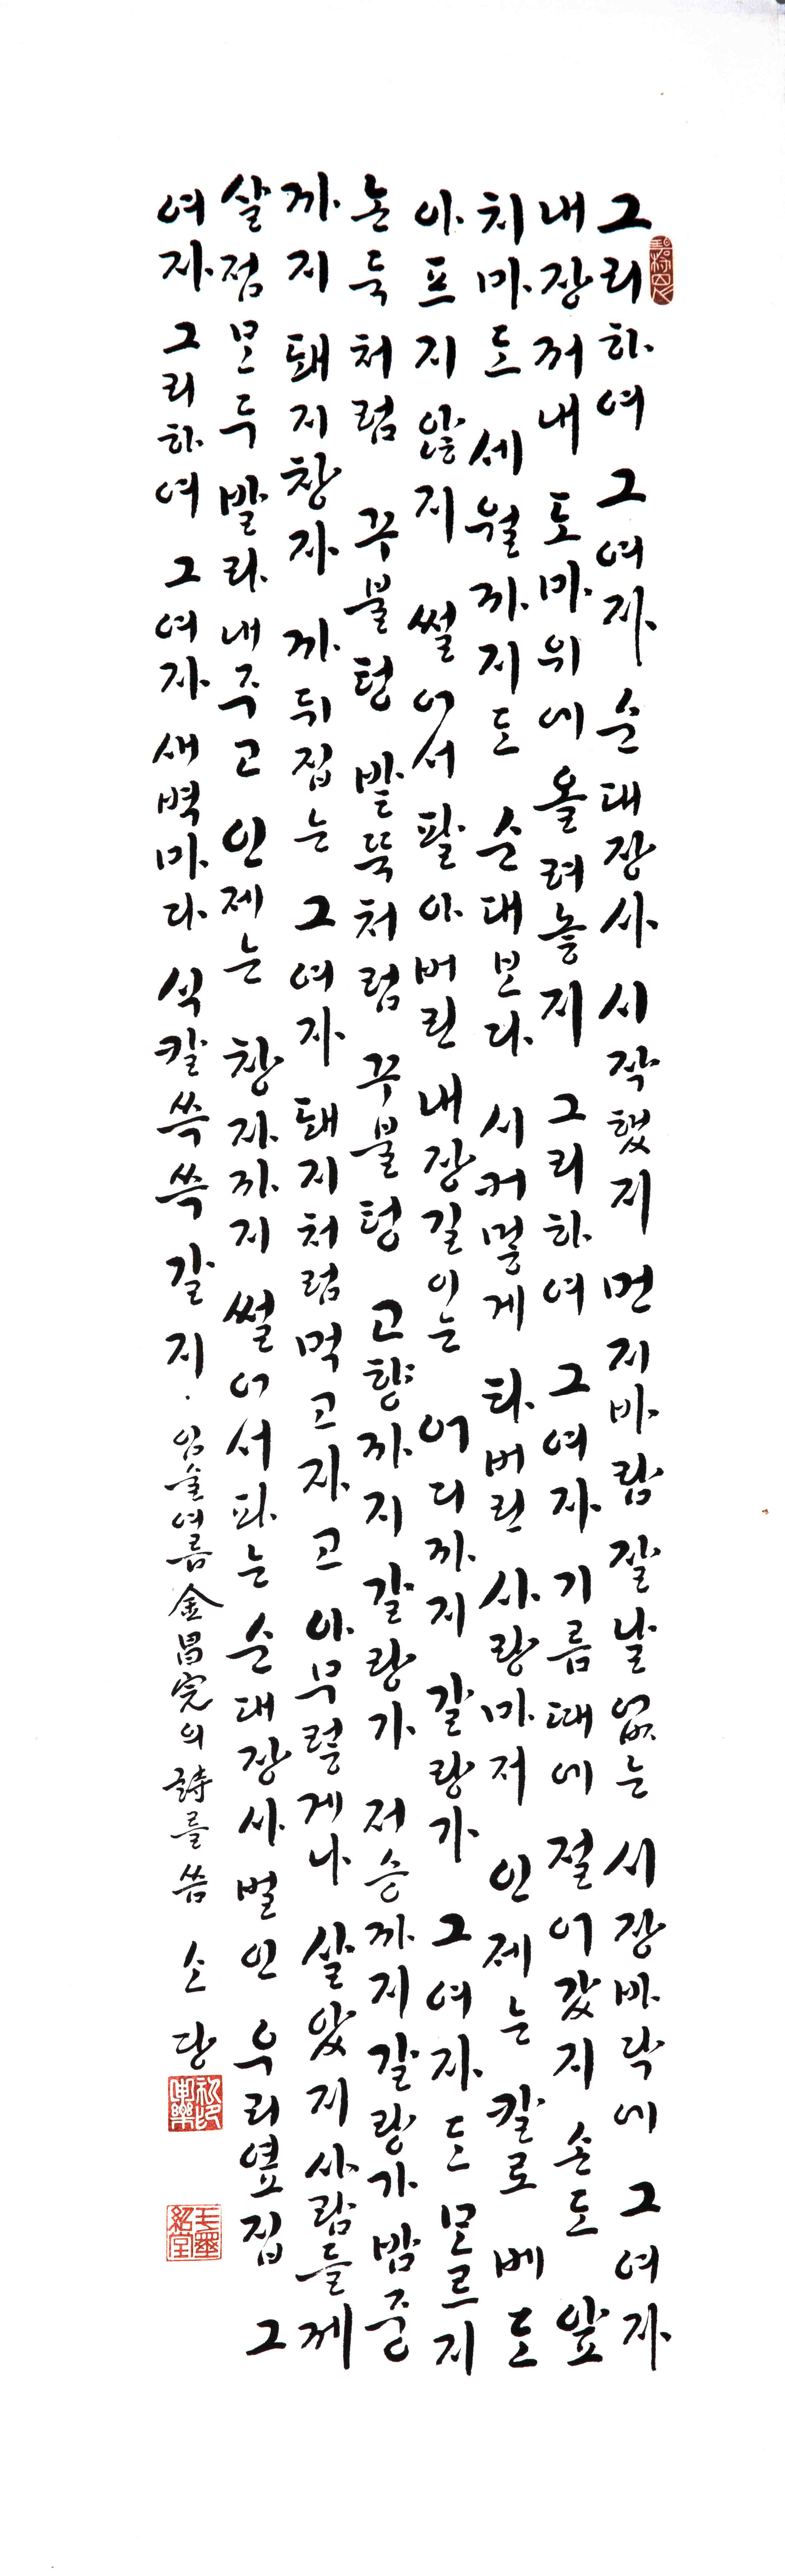 그리하여 그여자 순대장사 시작했지 먼지바람 잘날 없는 시장바닥에 그여자
내장꺼내 도마위에 올려놓지 그리하여 그여자 기름때에 절어갔지 손도 앞
치마도 세월까지도 순대보다 시커멓게 타버린 사랑마저 인제는 칼로 베도
아프지 않지 썰어서 팔아버린 내장길이는 어디까지 갈랑가 그여자도 모르지
논둑처럼 꾸불텅 밭뚝처럼 꾸불텅 고향까지 갈랑가 저승까지갈랑가 밤중
까지 돼지창자 까뒤집는 그여자 돼지처럼먹고자고 아무렇게나 살았지 사람들께
살점모두 발라내주고 인제는 창자까지 썰어서파는 순대장사 벌인 우리옆집 그
여자 그리하여 그여자 새벽마다 식칼쓱쓱 갈지.
임술여름 金昌完의 詩를 씀 소당